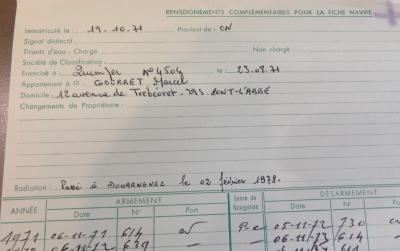 RENSEIGNEMENTS COMPLÉMENTAIRES POUR LA FICHE NAVIRE
Immatriculé le : 19.10.71 Provient de : CN
Signal distinctif :
Tirants d'eau : Chargé Non chargé
Société de Classification :
Francisé à Quimper N° 4504 le : 23.08.71
Appartenant à M GOURRET Marcel
Domicile : 12 avenue de Trébéoret . 29S. PONT-L'ABBÉ
Changements de Propriétaire :
Radiation : Passé à DOUARNENEZ le 02 février 1978.
ARMEMENT DÉSARMEMENT
ANNÉE Date N° Port Genre de Navigation Date N°
1971 06-11-71 614 Pc 05-11-72 730
06-11-72 639 614